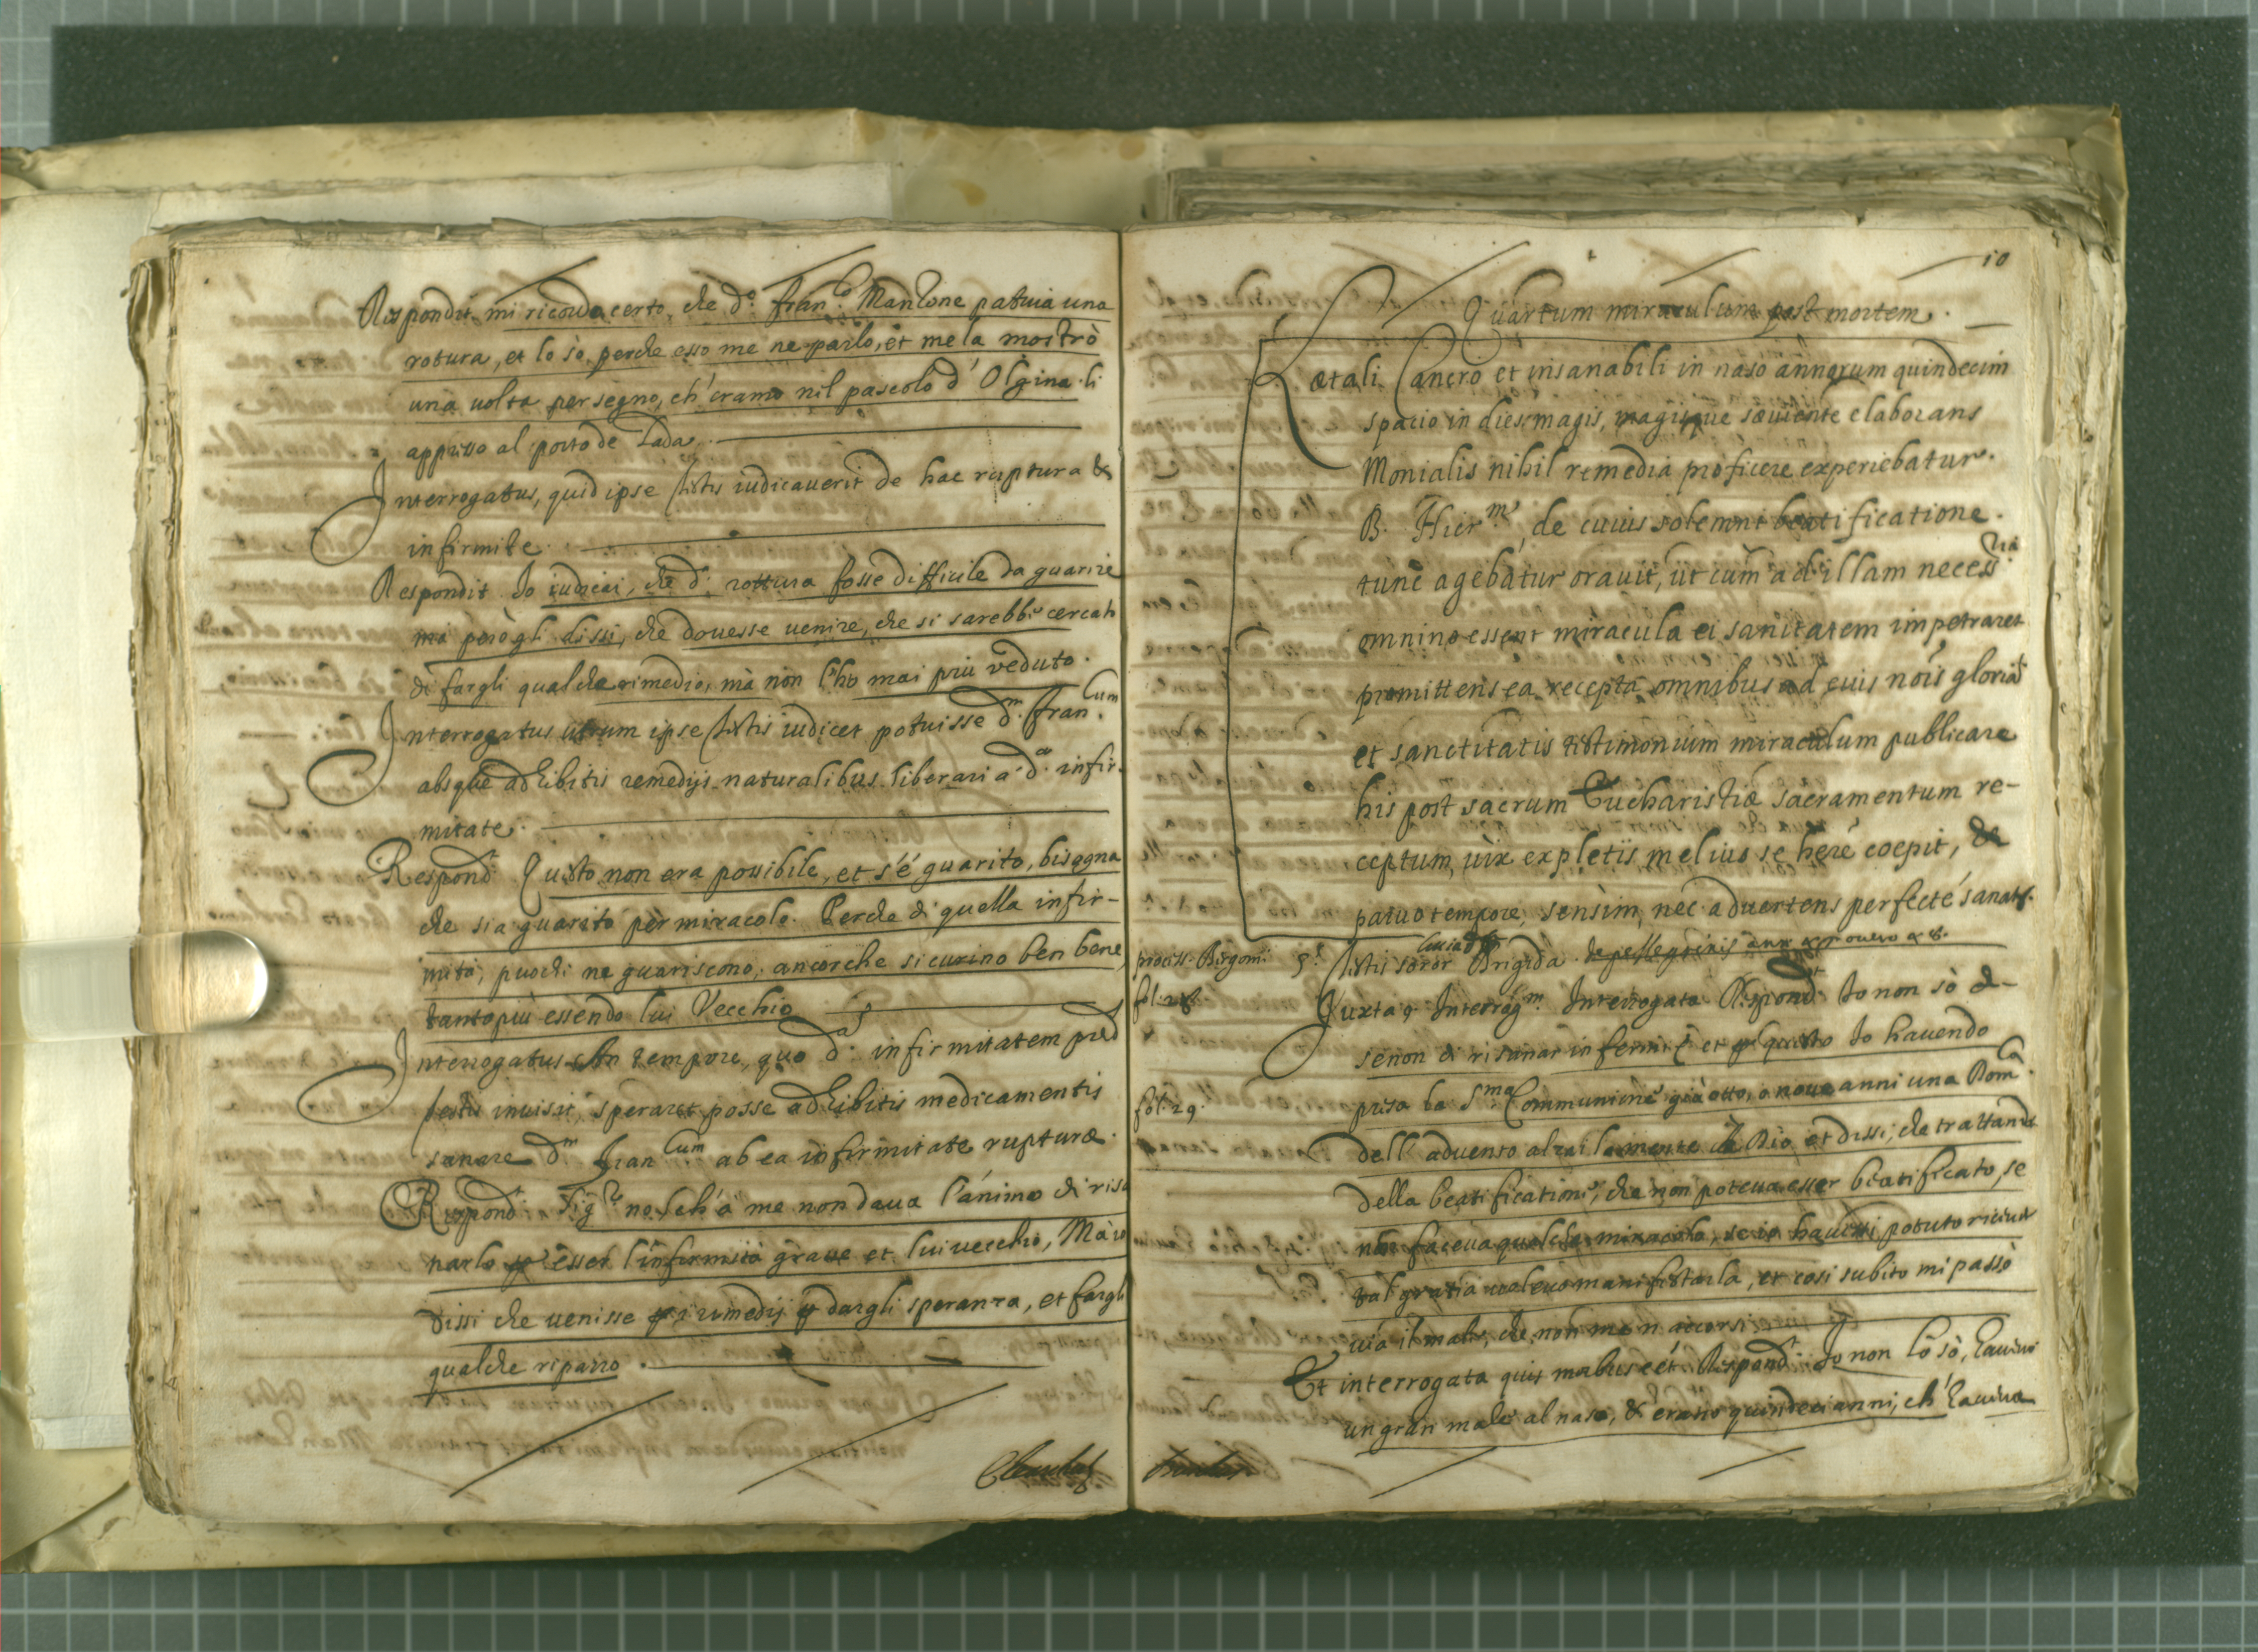 Respondit mi ricordo certo, che d.º fran.co Mantone patiuia una
rotura, et lo sò, perche esso me ne parlò, et me la mostrò
una uolta per segno, ch'eramo nil pascolo d'Olgina li
appresso al porto de Lada.
Interrogatus, quid ipse testis iudicauerit de hac ruptura &
infirmite
Respondit Io iudicai, che d.ª rottura fosse difficile da guarire
mà però gli dissi, che douesse uenire, che si sarebbe cercato
di fargli qualche rimedio, mà non l'ho mai più veduto.
Interrogatus utrum ipse testis iudicet potuisse d.m fran.cum
absque adhibitis remedijs naturalibus liberari a d.ª infir-
mitate.
Respond.t Questo non era possibile, et s'é guarito, bisogna
che sia guarito per miracolo. Perche di quella infir-
mità, puochi ne guariscono, ancorche si curino ben bene,
tanto più essendo lui Vecchio
Interrogatus An tempore, quo d.ª infirmitatem pred
testis inuisit, speraret posse adhibitis medicamentis
sanare d.m Fran.cum ab ea infirmitate rupturæ.
Respond.t Sig.re no, ch'à me non daua l'ánimo di risa
narlo p esser l'infirmità graue et lui uecchio, Mà io
dissi che uenisse p i rimedij p dargli speranza, et fargli
qualche riparro
10
Quartum miraculum post mortem.
Lætali Cancro et insanabili in naso annorum quindecim
spacio in dies magis, magisque sæuiente elaborans
Monialis nihil remedia proficere experiebatur.
B. Hier.me, de cuius solemni beatificatione
tunc agebatur orauit, ut cum ad illam necessria
omnino essent miracula ei sanitatem impetraret
promittens ea recepta omnibus ad euis nois gloria
et sanctitatis testimonium miraculum publicare
his post sacrum Eucharistiæ sacramentum re-
ceptum uix expletis melius se here coepit, &
paruo tempore, sensim, nec aduertens perfecté sanat.
process. Bergom. 5.s testis soror Brigida de pellegrinis
fol. 28. Juxta 9 Interrog.m Interrogata Respond.t Io non sò
senon di risanar infermi et p questo Io hauendo
fol. 29. presa la S.ma Communione già otto, o noue anni una Dom.ca
dell'aduento alzai la mente à Dio, et dissi, che trattando
della beatificatione, che non poteua esser beatificato, se
non faceua qualche miracolo, se io hauessi potuto riceuer
tal gratia uoleuo manifestarla, et cosi subito mi passò
uia il male, che non me n'accorsi
Et interrogata quis morbus eét. Respond.t Io non lo sò, haueuo
un gran male al naso, & erano quindeci anni, ch'haueua